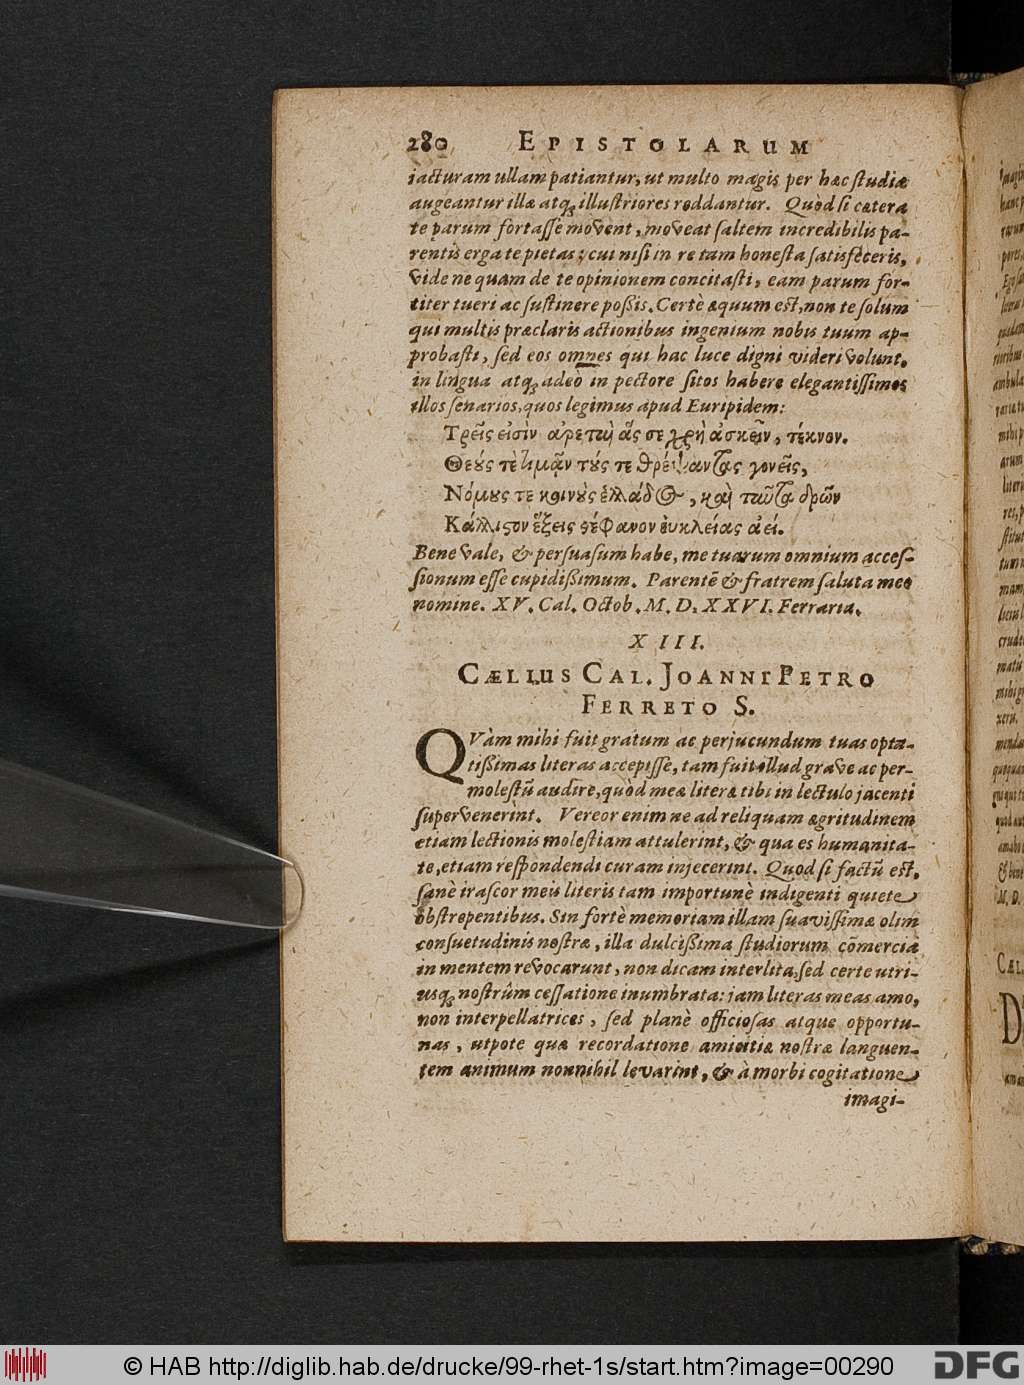 280 EPISTOLARUM
jacturam ullam patiantur, ut multo magis per hæc studia
augeantur illa atq; illustriores reddantur. Quòd si cætera
te parum fortasse movent, moveat saltem incredibilis pa-
rentis erga te pietas; cui nisi in re tam honesta satisfeceris,
vide ne quam de te opinionem concitasti, eam parum for-
titer tueri ac sustinere possis. Certè æquum est, non te solum
qui multis præclaris actionibus ingenium nobis tuum ap-
probasti, sed eos omnes qui hac luce digni videri volunt,
in lingua atq; adeò in pectore sitos habere elegantissimos
illos senarios, quos legimus apud Euripidem:
Τρεῖς εἰσὶν ἀρεταὶ ἃς σε χρὴ ἀσκεῖν, τέκνον.
Θεούς τὲ τιμᾷν τούς τε θρέψαντας γονεῖς,
Νόμους τε κοινοὺς ἑλλάδος, καὶ ταῦτα δρῶν
Κάλλιστον ἕξεις στέφανον ἐυκλείας ἀεί.
Bene vale, & persuasum habe, me tuarum omnium acces-
sionum esse cupidissimum. Parentē & fratrem saluta meo
nomine. XV. Cal. Octob. M. D. XXVI. Ferraria.
XIII.
CÆLIUS CAL. JOANNI PETRO
FERRETO S.
QVàm mihi fuit gratum ac perjucundum tuas opta-
tissimas literas accepisse, tam fuit illud grave ac per-
molestū audire, quòd meæ literæ tibi in lectulo jacenti
supervenerint. Vereor enim ne ad reliquam ægritudinem
etiam lectionis molestiam attulerint, & qua es humanita-
te, etiam respondendi curam injecerint. Quod si factū est,
sanè irascor meis literis tam importunè indigenti quiete
obstrepentibus. Sin fortè memoriam illam suavissimæ olim
consuetudinis nostræ, illa dulcissima studiorum cōmercia
in mentem revocarunt, non dicam interlita, sed certe utri-
usq; nostrûm cessatione inumbrata: jam literas meas amo,
non interpellatrices, sed planè officiosas atque opportu-
nas, utpote quæ recordatione amicitiæ nostræ languen-
tem animum nonnihil levarint, & à morbi cogitatione
imagi-
© HAB http://diglib.hab.de/drucke/99-rhet-1s/start.htm?image=00290
DFG